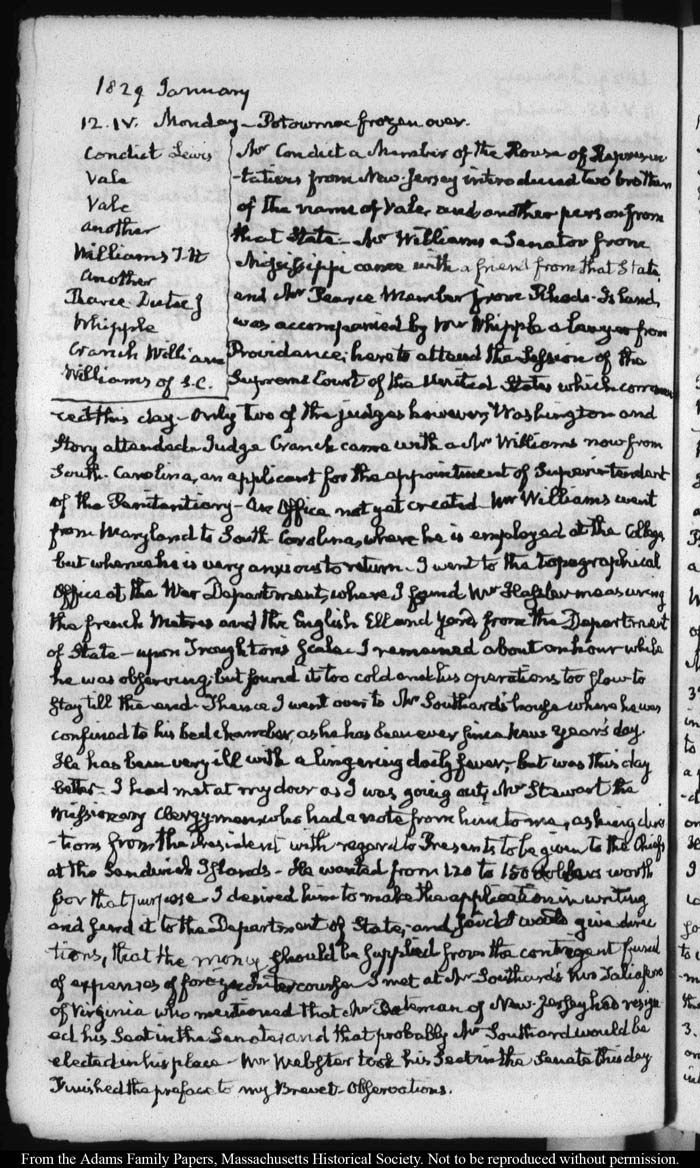 1829 January
12. IV. Monday - Potowmac frozen over.
Condict Lewis
Vale
Vale
another
Williams T. H
another
Pearce Dutee J
Whipple
Cranch William
Williams of S.C.
Mr Condict a Member of the House of Represen
-tatives from New-Jersey introduced two brothers
of the name of Vale, and another person from
that State - Mr Williams a Senator from
Mississippi came with a friend from that State,
and Mr Pearce Member from Rhode-Island,
was accompanied by Mr Whipple a lawyer from
Providence; here to attend the Session of the
Supreme Court of the United States which commen
ced this day - Only two of the judges however, Washington and
Story attended. Judge Cranch came with a Mr Williams now from
South-Carolina, an applicant for the appointment of Superintendent
of the Penitentiary - An Office not yet created - Mr Williams went
from Maryland to South-Carolina, where he is employed at the College,
but whence he is very anxious to return - I went to the topographical
Office at the War Department, where I found Mr Hassler measuring
the french Metres and the English Ell and yard from the Department
of State - upon Troughton's Scale. I remained about an hour while
he was observing, but found it too cold and his operations too slow to
stay till the end - Thence I went over to Mr Southard's house where he was
confined to his bed chamber, as he has been ever since New Year's day.
He has been very ill with a lingering daily fever; but was this day
better - I had met at my door as I was going out, Mr Stewart the
Missionary Clergyman, who had a note from him to me, asking direc
-tions from the President with regard to Presents to be given to the Chiefs
at the Sandwich Islands - He wanted from 120 to 150 dollars worth
for that purpose - I desired him to make the application in writing
and send it to the Department of State; and said I would give direc
tions, that the money should be supplied from the contingent fund
of expenses of foreign intercourse. I met at Mr Southard's Mr Taliafero
of Virginia who mentioned that Mr Bateman of New-Jersey has resign
ed his Seat in the Senate; and that probably Mr Southard would be
elected in his place - Mr Webster took his Seat in the Senate this day
Finished the preface to my Brevet-Observations.
From the Adams Family Papers, Massachusetts Historical Society. Not to be reproduced without permission.